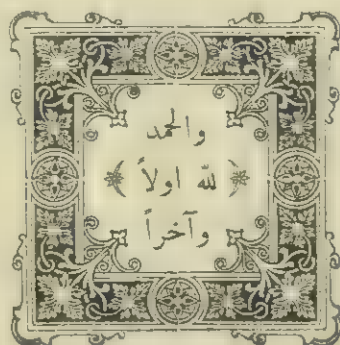 والحمد
﴿ لله اولاً ﴾
وآخراً